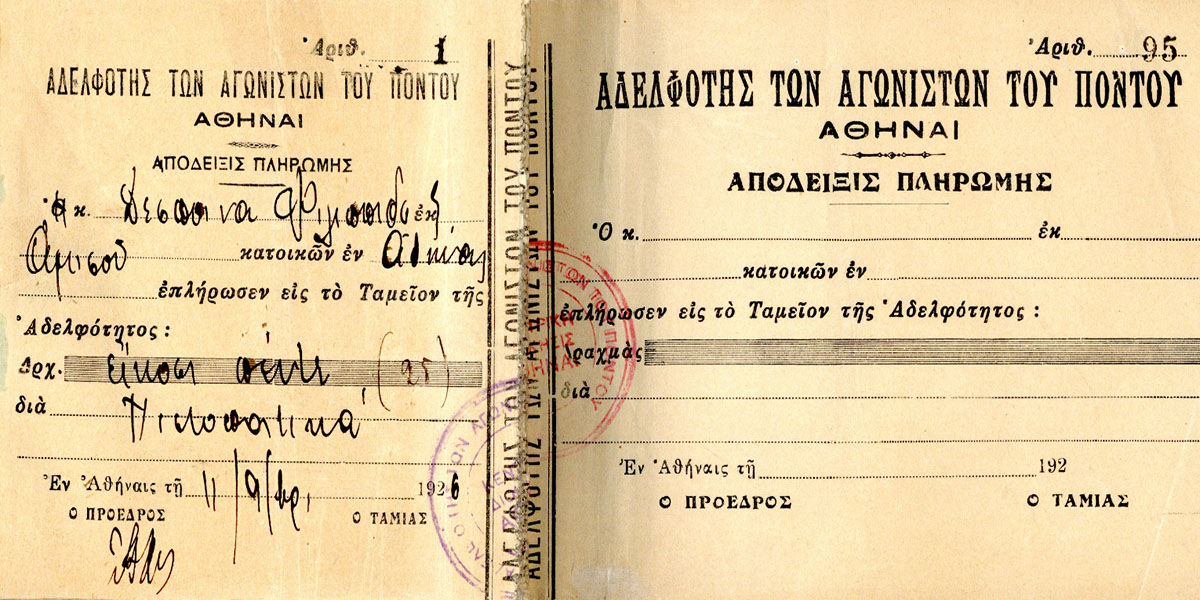 Ἀριθ. 1
ΑΔΕΛΦΟΤΗΣ ΤΩΝ ΑΓΩΝΙΣΤΩΝ ΤΟΥ ΠΟΝΤΟΥ
ΑΘΗΝΑΙ
ΑΠΟΔΕΙΞΙΣ ΠΛΗΡΩΜΗΣ
κ. Δέσποινα ἐκ
Ἀμισοῦ κατοικῶν ἐν Ἀθήναις
ἐπλήρωσεν εἰς τὸ Ταμεῖον τῆς
Ἀδελφότητος :
Δρχ. εἴκοσι πέντε (25)
διὰ
Ἐν Ἀθήναις τῇ 11/9/ 1926
Ο ΠΡΟΕΔΡΟΣ Ο ΤΑΜΙΑΣ
ΑΔΕΛΦΟΤΗΣ ΤΩΝ ΑΓΩΝΙΣΤΩΝ ΤΟΥ ΠΟΝΤΟΥ
ΑΔΕΛΦΟΤΗΣ ΤΩΝ ΑΓΩΝΙΣΤΩΝ ΤΟΥ ΠΟΝΤΟΥ
Ἀριθ. 95
ΑΔΕΛΦΟΤΗΣ ΤΩΝ ΑΓΩΝΙΣΤΩΝ ΤΟΥ ΠΟΝΤΟΥ
ΑΘΗΝΑΙ
ΑΠΟΔΕΙΞΙΣ ΠΛΗΡΩΜΗΣ
Ὁ κ. ἐκ
κατοικῶν ἐν
ἐπλήρωσεν εἰς τὸ Ταμεῖον τῆς Ἀδελφότητος :
Δραχμὰς
διὰ
Ἐν Ἀθήναις τῇ 192
Ο ΠΡΟΕΔΡΟΣ Ο ΤΑΜΙΑΣ